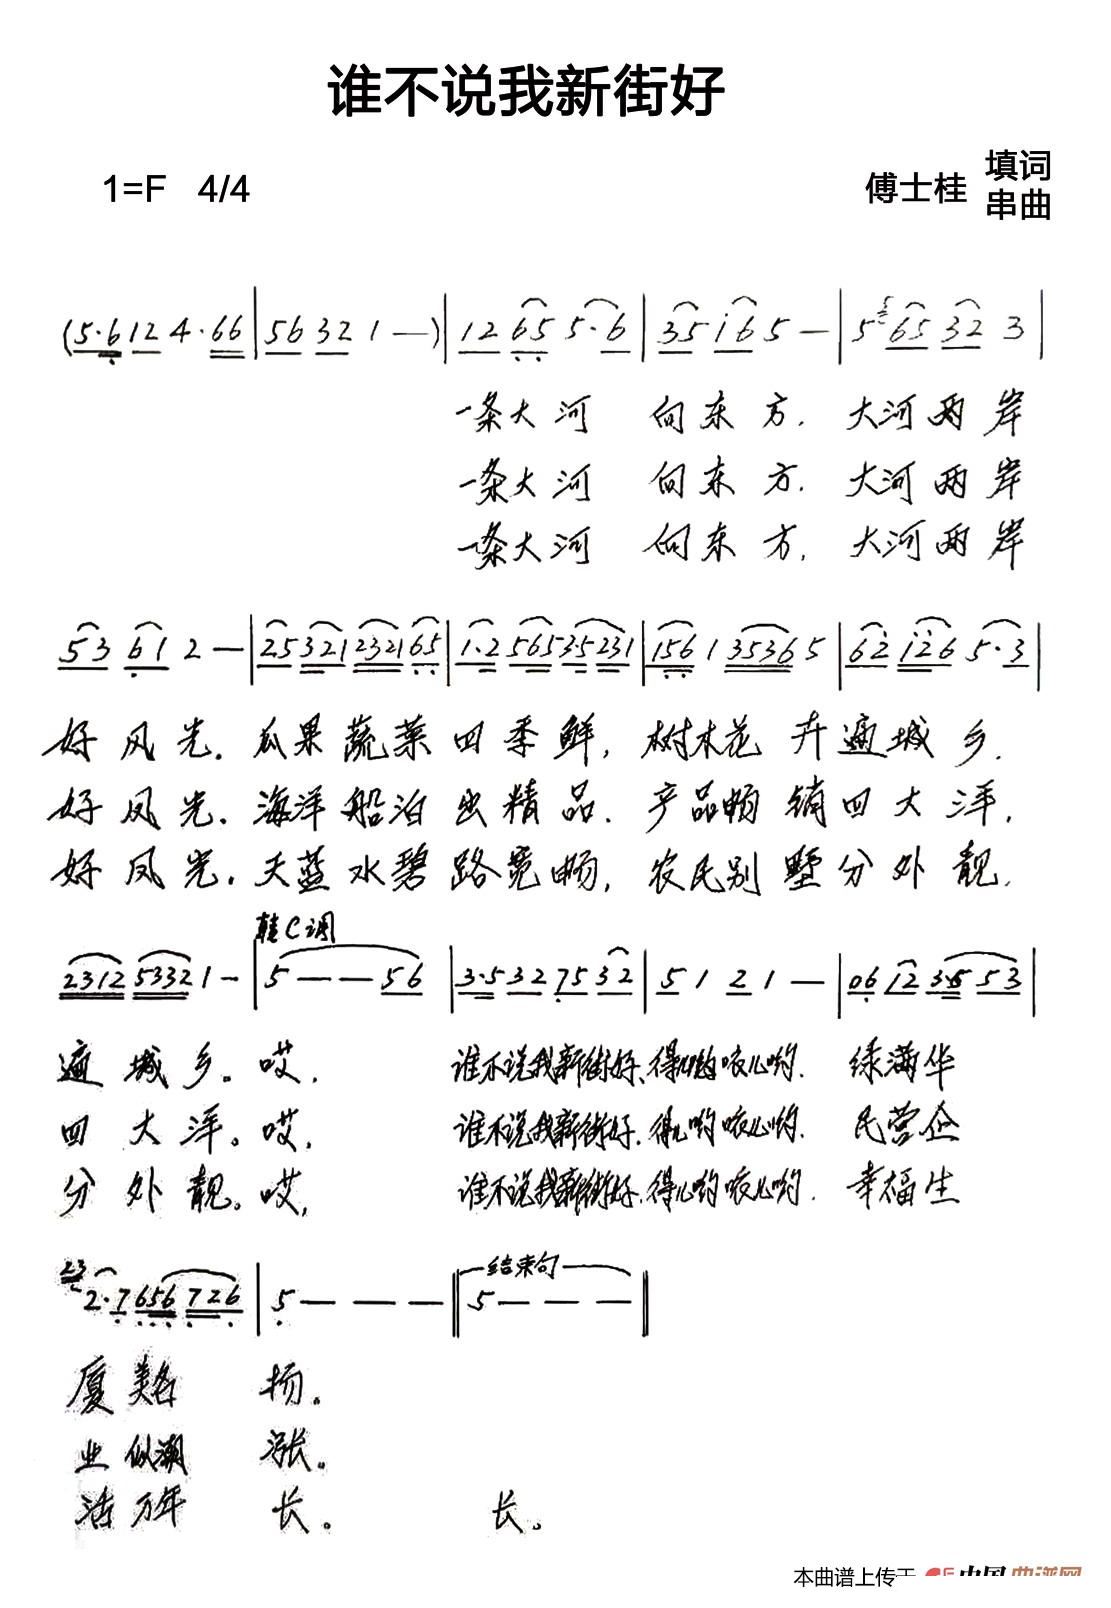 谁不说我新街好
1=F 4/4
傅士桂 填词
串曲
(5·6 12 4·66 | 56 32 1 —) | 12 65 5·6 | 35 i6 5 — | 5 65 32 3 |
一条大河 向东方. 大河两岸
一条大河 向东方. 大河两岸
一条大河 向东方. 大河两岸
53 61 2 — | 25 321 2321 65 | 1·2 565 35 231 | 156 1 3536 5 | 62 i26 5·3 |
好风光. 瓜果蔬菜四季鲜, 树木花卉遍城乡.
好风光. 海洋船泊出精品. 产品畅销四大洋,
好风光. 天蓝水碧路宽畅, 农民别墅分外靓.
转C调
2312 5332 1 – | 5 — — 56 | 3·5 32 75 32 | 51 21 — | 06 12 53 |
遍城乡。哎, 谁不说我新街好、得儿哟哝儿哟. 绿满华
四大洋。哎, 谁不说我新街好. 得儿哟哝儿哟. 民营企
分外靓。哎, 谁不说我新街好. 得儿哟哝儿哟. 幸福生
结束句
23 2·7 656 726 | 5 — — — || 5 — — — ||
厦美名 扬。
业似潮 涨。
活万年 长。 长。
本曲谱上传于 中国曲谱网